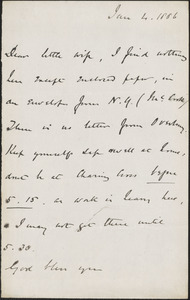 Jan 4. 1886
Dear little wife, I find nothing
here except enclosed paper, in
an envelope from N.Y. (McCook)
There is no letter from Overbury
Keep yourself safe & well at home,
don't be at Charing Cross before
5.15. as walk in leaving here,
& I may not get there until
5.30
God bless you